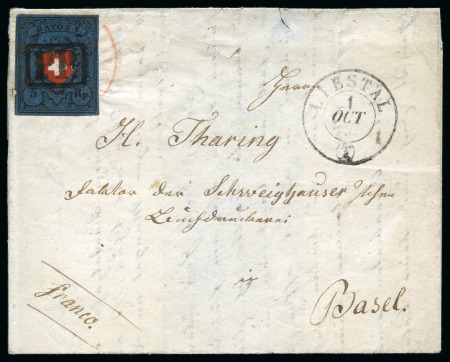 RAYON I.
P.P.
5 Rp.
LIESTAL
1
OCT
Herrn
H. Tharing
Faktor der Schweighauser'schen
Buchdruckerei
in
Basel.
franco.